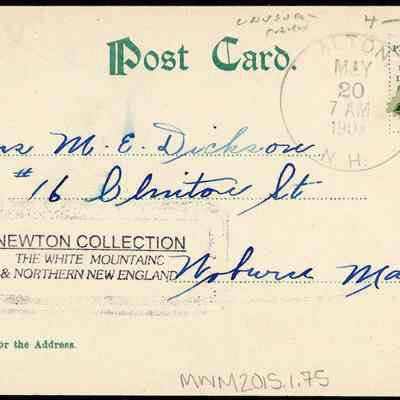 UNUSUAL
4-
Post Card.
ALTON
MAY
20
7 AM
N.H.
rs M. E. Dickson
#16 Clinton St
NEWTON COLLECTION
THE WHITE MOUNTAINS
& NORTHERN NEW ENGLAND
Woburn Ma
or the Address.
MWM2015.1.75